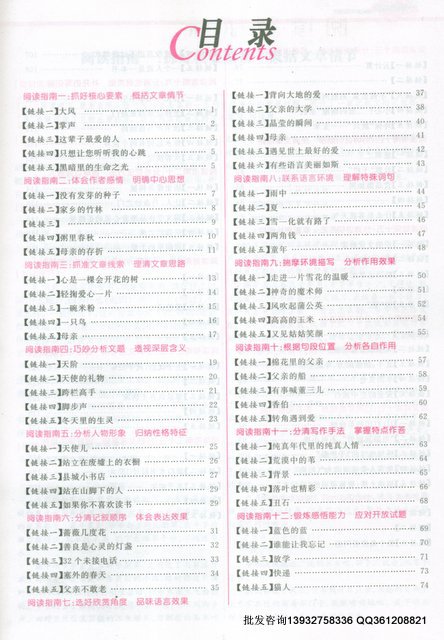 目录
Contents
阅读指南一：抓好核心要素 概括文章情节
【链接一】大风 1
【链接二】掌声 2
【链接三】这辈子最爱的人 3
【链接四】只想让您听听我的心跳 5
【链接五】黑暗里的生命之光 5
阅读指南二：体会作者感情 明确中心思想
【链接一】没有发芽的种子 7
【链接二】家乡的竹林 8
【链接三】 9
【链接四】粥里春秋 10
【链接五】母亲的存折 11
阅读指南三：抓准文章线索 理清文章思路
【链接一】心是一棵会开花的树 13
【链接二】轻掬爱心一片 14
【链接三】一碗米粉 15
【链接四】一只鸟 16
【链接五】母亲 17
阅读指南四：巧妙分析文题 透视深层含义
【链接一】天阶 19
【链接二】天使的礼物 20
【链接三】跨栏高手 21
【链接四】脚步声 22
【链接五】冬天里的生灵 23
阅读指南五：分析人物形象 归纳性格特征
【链接一】天使儿 25
【链接二】站立在废墟上的衣橱 26
【链接三】县城小书店 27
【链接四】站在山脚下的人 29
【链接五】如果你不喜欢读书 29
阅读指南六：分清记叙顺序 体会表达效果
【链接一】蔷薇几度花 31
【链接二】善良是心灵的灯盏 32
【链接三】32个未接电话 33
【链接四】塞外的春天 34
【链接五】父亲不敢老 35
阅读指南七：选好欣赏角度 品味语言效果
【链接一】背向大地的爱 37
【链接二】父亲的大学 38
【链接三】晶莹的瞬间 40
【链接四】母亲 41
【链接五】遇见世上最好的爱 42
【链接六】有些语言美丽如斯 43
阅读指南八：联系语言环境 理解特殊词句
【链接一】雨中 44
【链接二】夏 45
【链接三】雪一化就有路了 46
【链接四】两角钱 47
【链接五】童年 48
阅读指南九：揣摩环境描写 分析作用效果
【链接一】走进一片雪花的温暖 50
【链接二】神奇的魔术师 51
【链接三】风吹起蒲公英 52
【链接四】高高的玉米 54
【链接五】又见姑姑笑颜 55
阅读指南十：根据句段位置 分析各自作用
【链接一】棉花里的父亲 57
【链接二】父亲的船 58
【链接三】有事喊董三儿 59
【链接四】香伯 60
【链接五】转角遇到爱 62
阅读指南十一：分清写作手法 掌握特点作答
【链接一】纯真年代里的纯真人情 63
【链接二】荒漠中的苇 64
【链接三】背景 65
【链接四】落叶也精彩 66
【链接五】丑石 68
阅读指南十二：锻炼感悟能力 应对开放试题
【链接一】蓝色的蓝 69
【链接二】谁能让我忘记 70
【链接三】放学 71
【链接四】快递 73
【链接五】猫人 74
批发咨询13932758336 QQ361208821